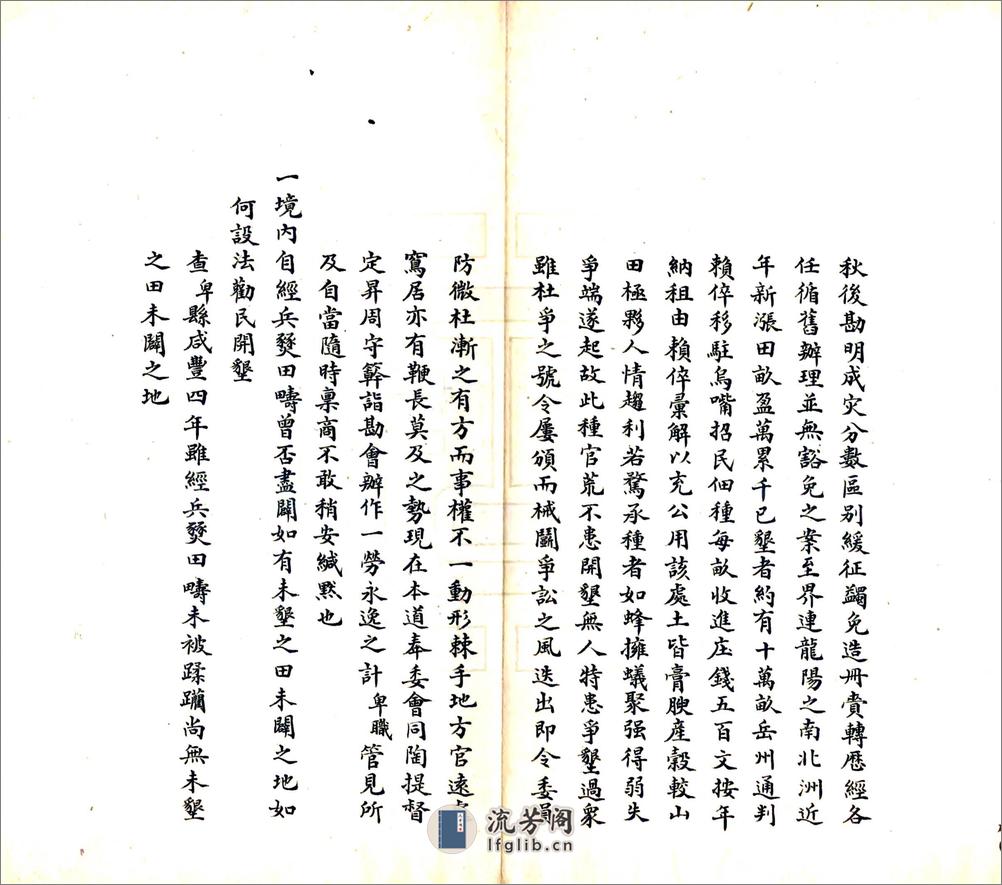 秋後勘明成灾分數區别緩征蠲免造冊賫轉歷經各
任循舊辦理並無豁免之案至界連龍陽之南北洲近
年新漲田畝盈萬累千已墾者約有十萬畝岳州通判
賴倅移駐烏嘴招民佃種每畝收進庄錢五百文按年
納租由賴倅彙解以充公用該處土皆膏腴產穀較山
田極夥人情趨利若騖承種者如蜂擁蟻聚强得弱失
爭端遂起故此種官荒不患開墾無人特患爭墾過衆
雖杜爭之號令屢頒而械鬭爭訟之風迭出即令委員
防微杜漸之有方而事權不一動形棘手地方官遠
寫居亦有鞭長莫及之勢現在本道奉委會同陶提督
定昇周守簳詣勘會辦作一勞永逸之計卑職管見所
及自當隨時稟商不敢稍安緘默也
一境内自經兵燹田疇曾否盡闢如有未墾之田未闢之地如
何設法勸民開墾
查卑縣咸豐四年雖經兵燹田疇未被蹂躪尚無未墾
之田未闢之地
流芳阁
lfglib.cn